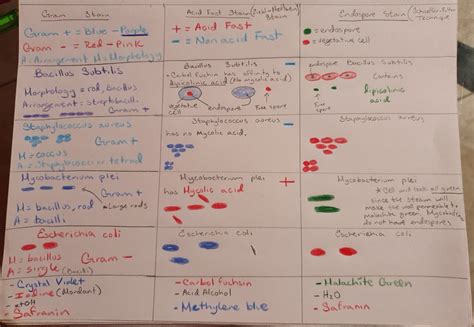 Gram Stain
Gram + = Blue - Purple
Gram - = Red - Pink
A = Arrangement M = Morphology
Acid Fast Stain
Stain
+ = Acid Fast
- = Non acid Fast
Endospore Stain
Technique
= endospore
= vegetative cell
Bacillus Subtilis
Morphology = rod, bacillus
Arrangement = Streptobacilli
Gram +
Bacillus Subtilis
Carbol fuchsin has affinity to
dipicolinic acid
vegetative
cell
endospore
Free
spore
Bacillus Subtilis
Contains
dipicolinic
acid
Free
spore
Staphylococcus aureus
Gram +
M = coccus
A = Staphylococci or tetrad
Staphylococcus aureus
has no Mycolic acid.
Staphylococcus aureus
Mycobacterium plei
Gram +
M = bacillus, rod
Large rods
A = bacilli
Mycobacterium plei
has Mycolic acid
+
Mycobacterium plei
* Cell will look all green
since the steam will
make the wall permeable to
malachite green. Mycobacteria
do not have endospores.
Escherichia coli
M = bacillus
Gram -
A = Single (bacilli)
Escherichia coli
Escherichia coli
- Crystal Violet
- Iodine (Mordant)
- etOH
- Safranin
- Carbol fuchsin
- Acid Alcohol
- Methylene blue
- Malachite Green
- H2O
- Safranin